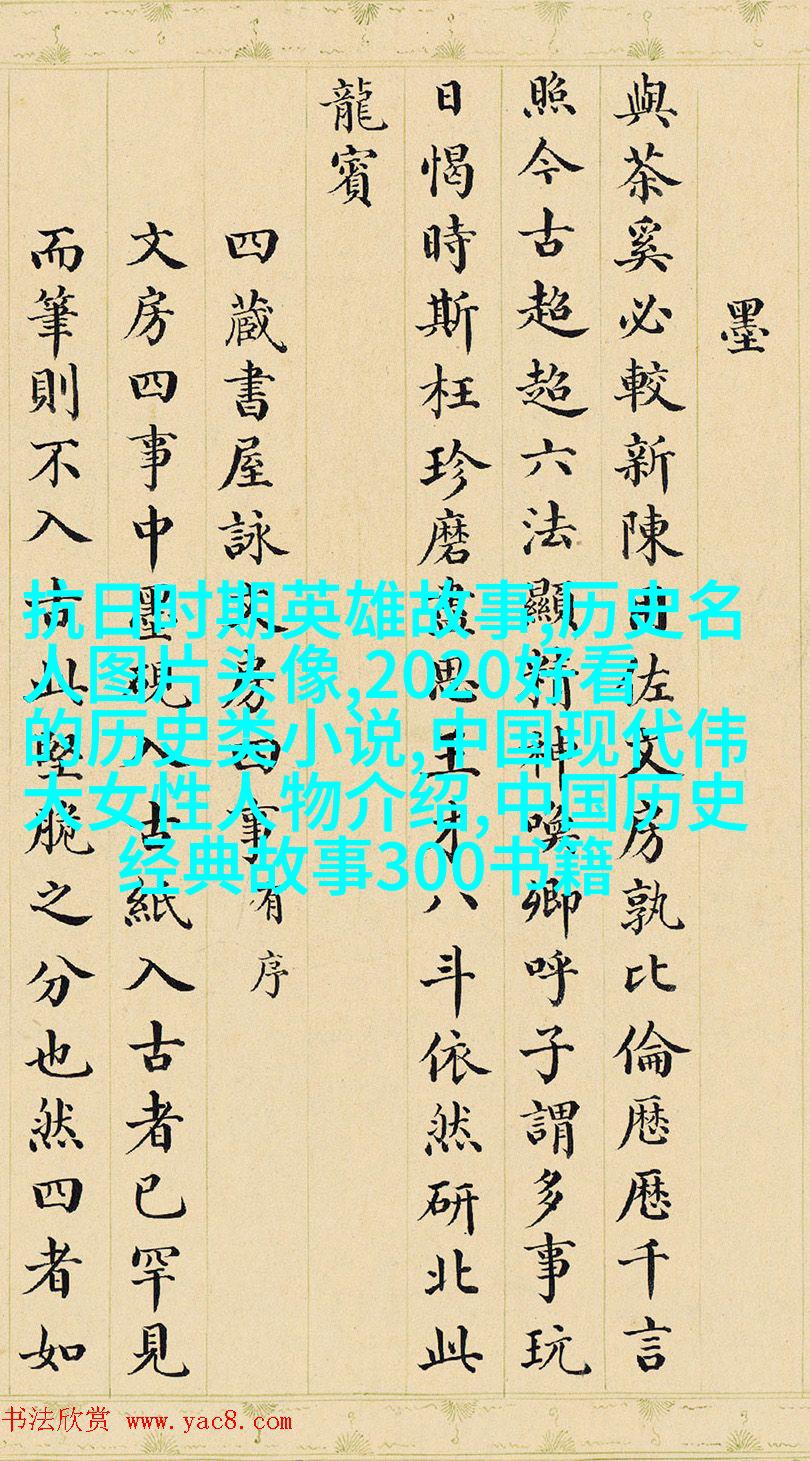 墨
與茶奚必較新陳佐文房孰比倫厯厯千言
照今古超超六法顯精神喚卿呼子謂多事玩
日愒時斯枉珍磨盡思王才八斗依然研北此
龍賓
四蔵書屋詠文房四事有序
文房四事中墨硯入古紙入古者已罕見
而筆則不入古此堅脆之分也然四者如
抗日时期英雄故事,历史名
人图片头像,2020好看
的历史类小说,中国现代伟
大女性人物介绍,中国历史
经典故事300书籍
书法欣赏 www.yac8.com